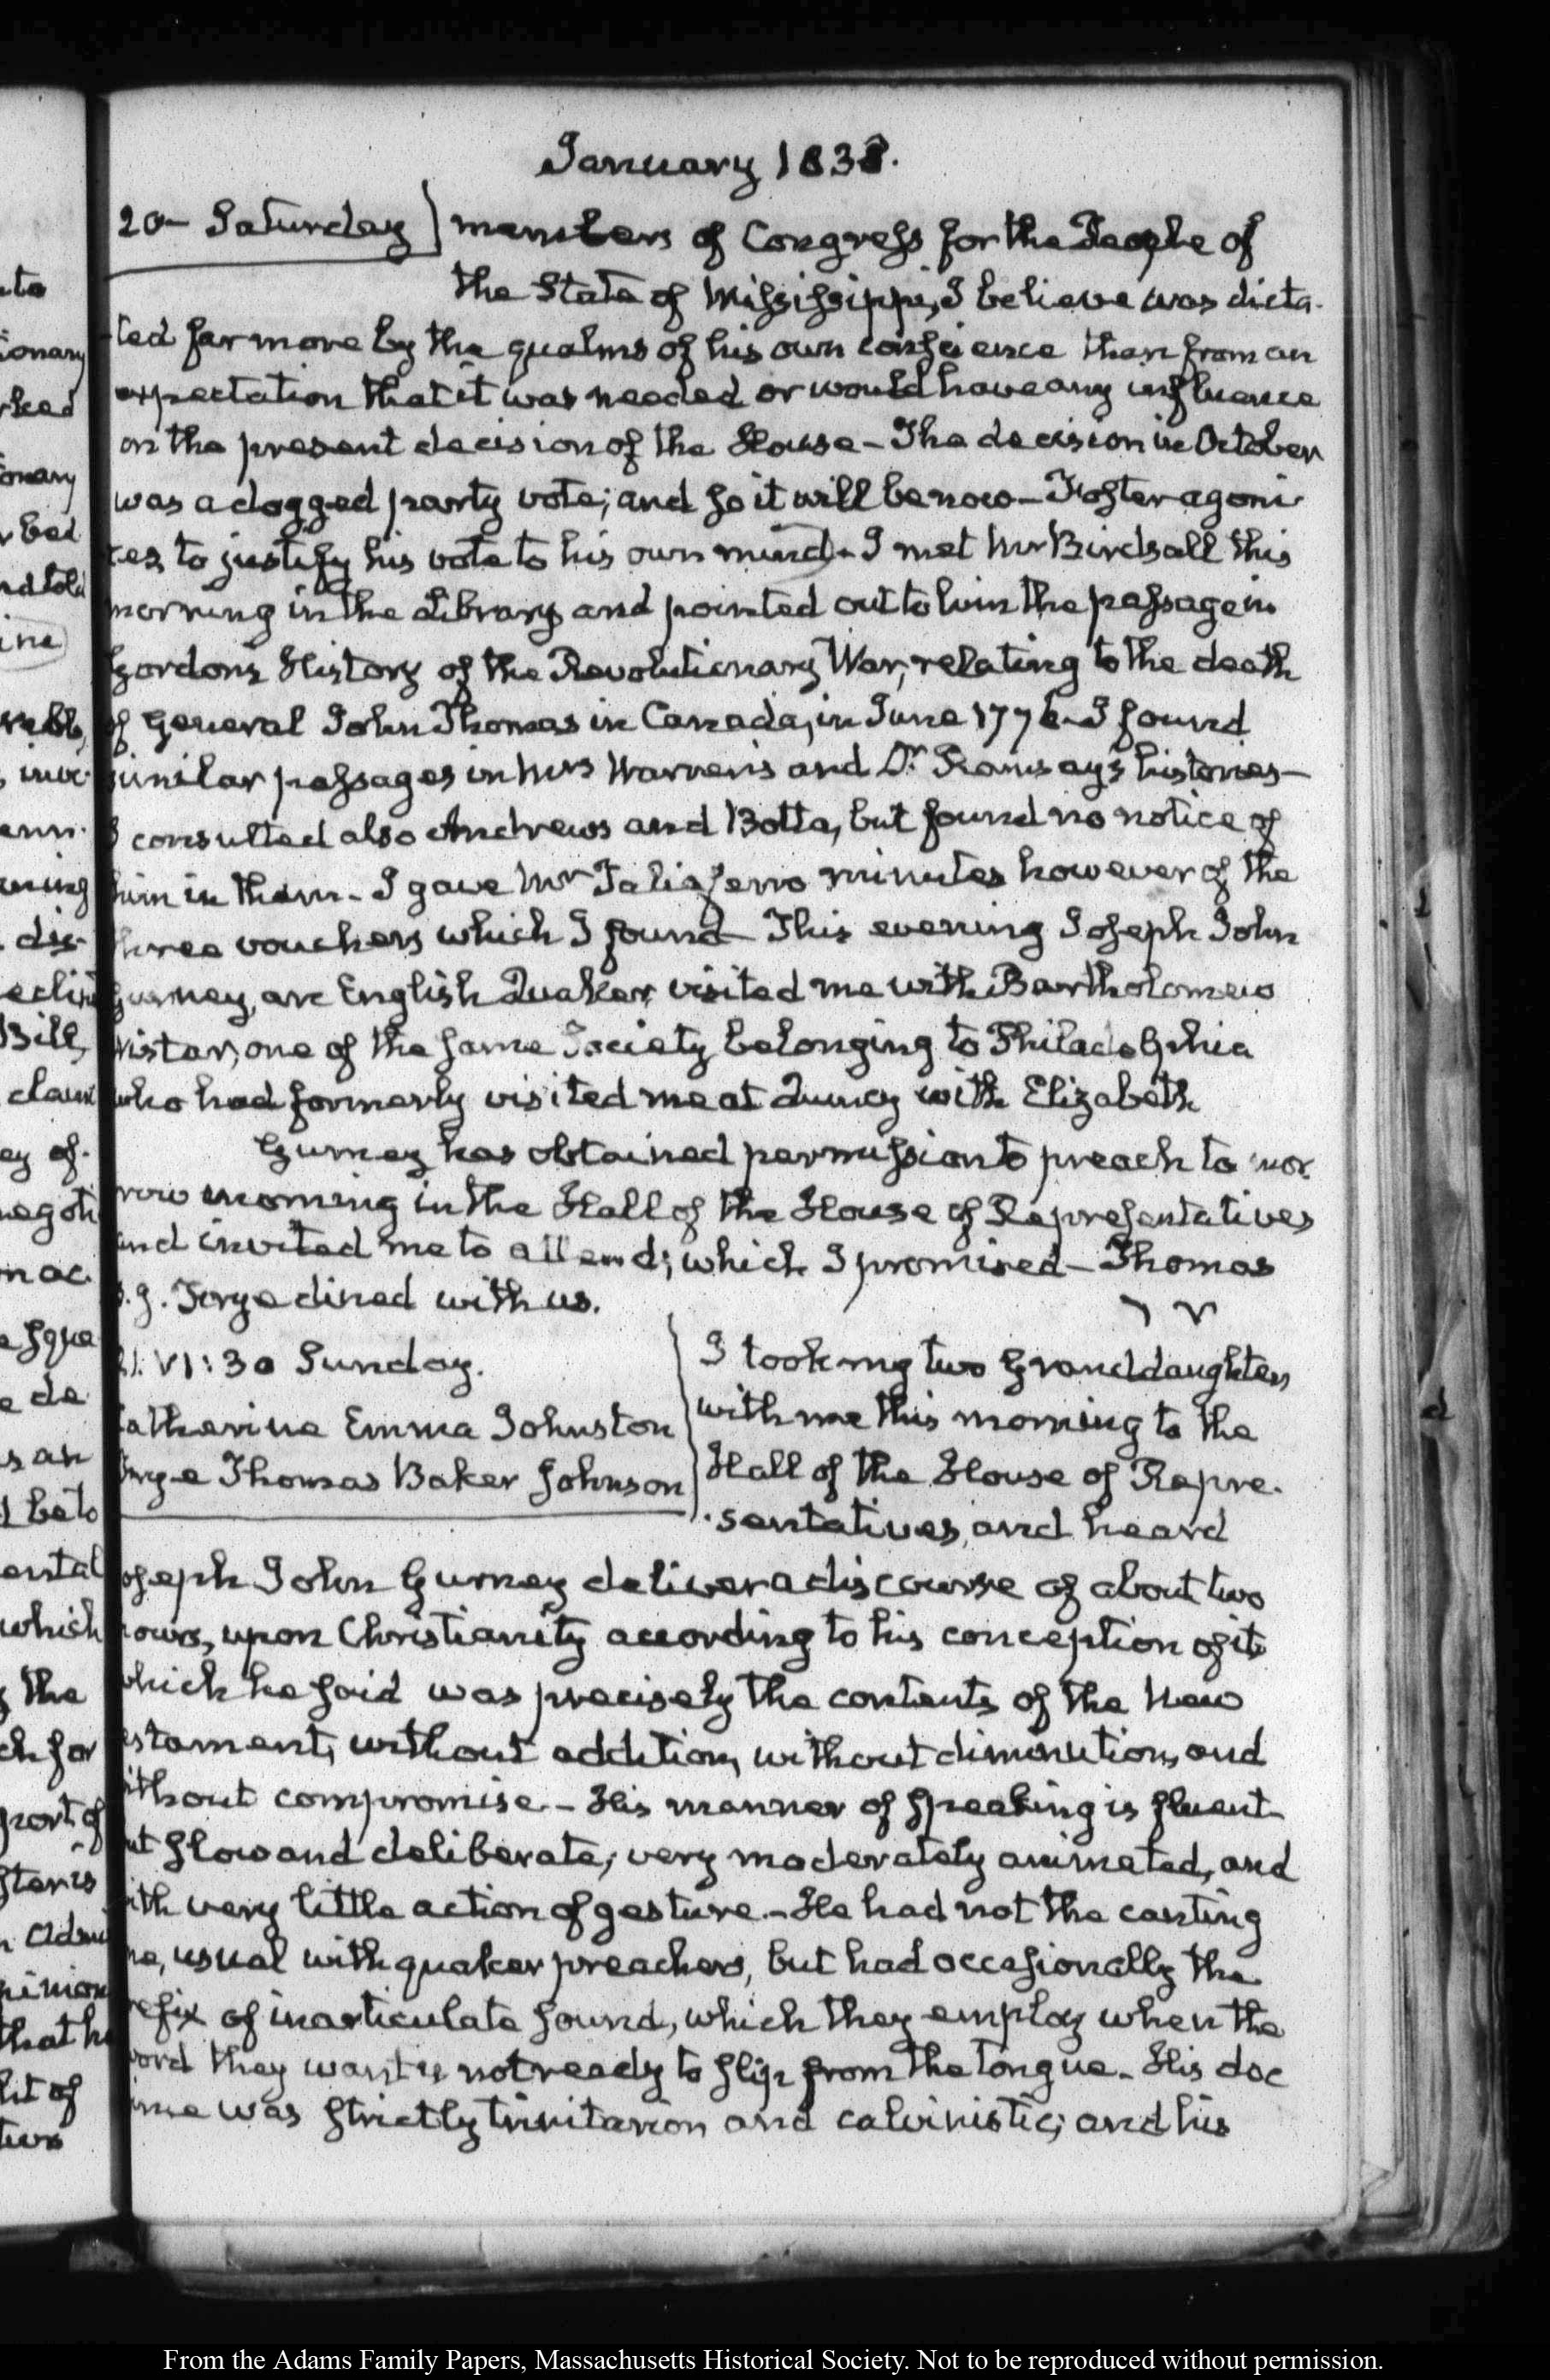 January 1838.
20- Saturday members of Congress for the People of
the State of Mississippi, I believe was dicta-
ted far more by the qualms of his own conscience than from an
expectation that it was needed or would have any influence
on the present decision of the House - The decision in October
was a dogged party vote; and so it will be now - Foster agoni-
zes to justify his vote to his own mind - I met Mr Birdsall this
morning in the Library and pointed out to him the passage in
Gordon's History of the Revolutionary War, relating to the death
of General John Thomas in Canada, in June 1776 - I found
similar passages in Mrs Warren's and Dr. Ramsay's histories -
I consulted also Andrews and Botta, but found no notice of
him in them - I gave Mr Taliaferro minutes however of the
three vouchers which I found - This evening Joseph John
Gurney, an English Quaker, visited me with Bartholomew
Wistar, one of the same Society belonging to Philadelphia
who had formerly visited me at Quincy with Elizabeth
Gurney has obtained permission to preach to mor
row morning in the Hall of the House of Representatives
and invited me to attend; which I promised - Thomas
dined with us.
21. VI:30 Sunday.
Catherine Emma Johnston
Thomas Baker Johnson
I took my two Granddaughters
with me this morning to the
Hall of the House of Repre-
-sentatives, and heard
Joseph John Gurney deliver a discourse of about two
hours, upon Christianity according to his conception of it
which he said was precisely the contents of the New
estament, without addition, without diminution, and
ithout compromise - His manner of speaking is fluent
ut slow and deliberate, very moderately animated, and
ith very little action of gesture - He had not the canting
ne, usual with quaker preachers, but had occasionally the
refix of inarticulate sound, which they employ when the
word they want is not ready to slip from the tongue - His doc
ine was strictly trinitarian and calvinistic; and his
From the Adams Family Papers, Massachusetts Historical Society. Not to be reproduced without permission.